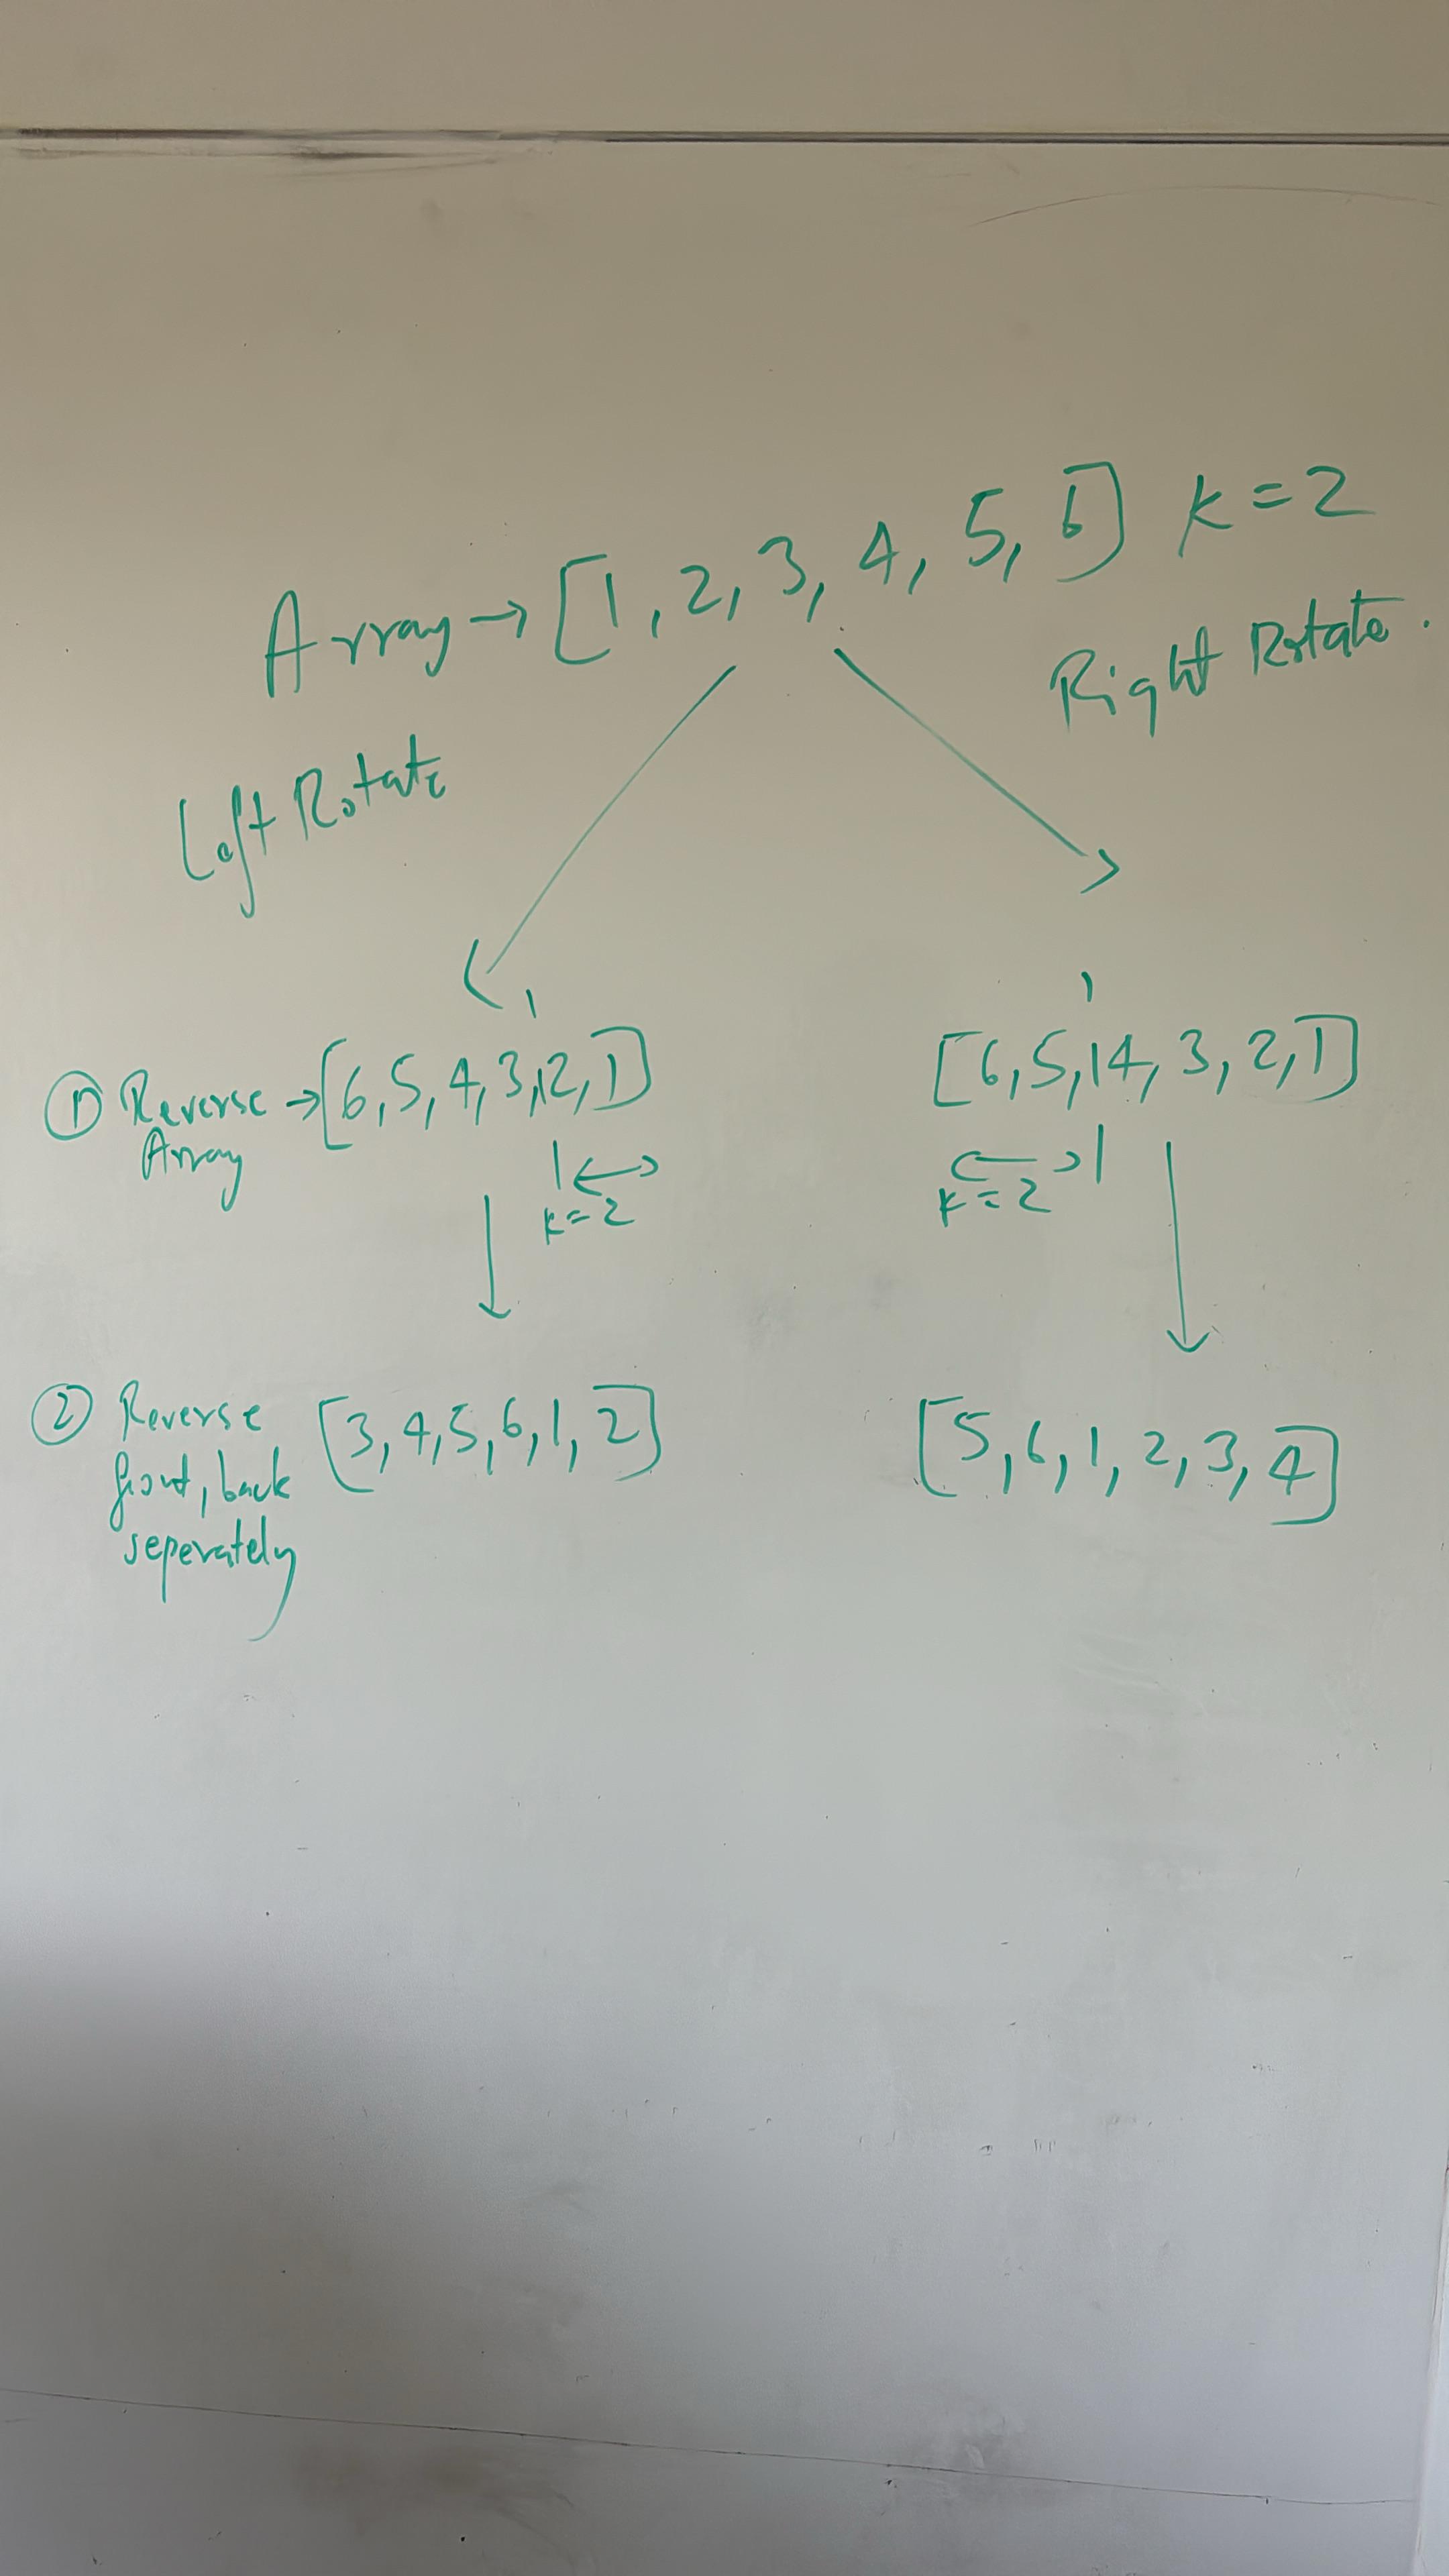 Array → [1, 2, 3, 4, 5, 6] k = 2
Right Rotate.
Left Rotate
① Reverse → [6, 5, 4, 3, | 2, 1]
Array
k = 2
[6, 5, | 4, 3, 2, 1]
k = 2
② Reverse
front, back
seperately
[3, 4, 5, 6, 1, 2]
[5, 6, 1, 2, 3, 4]